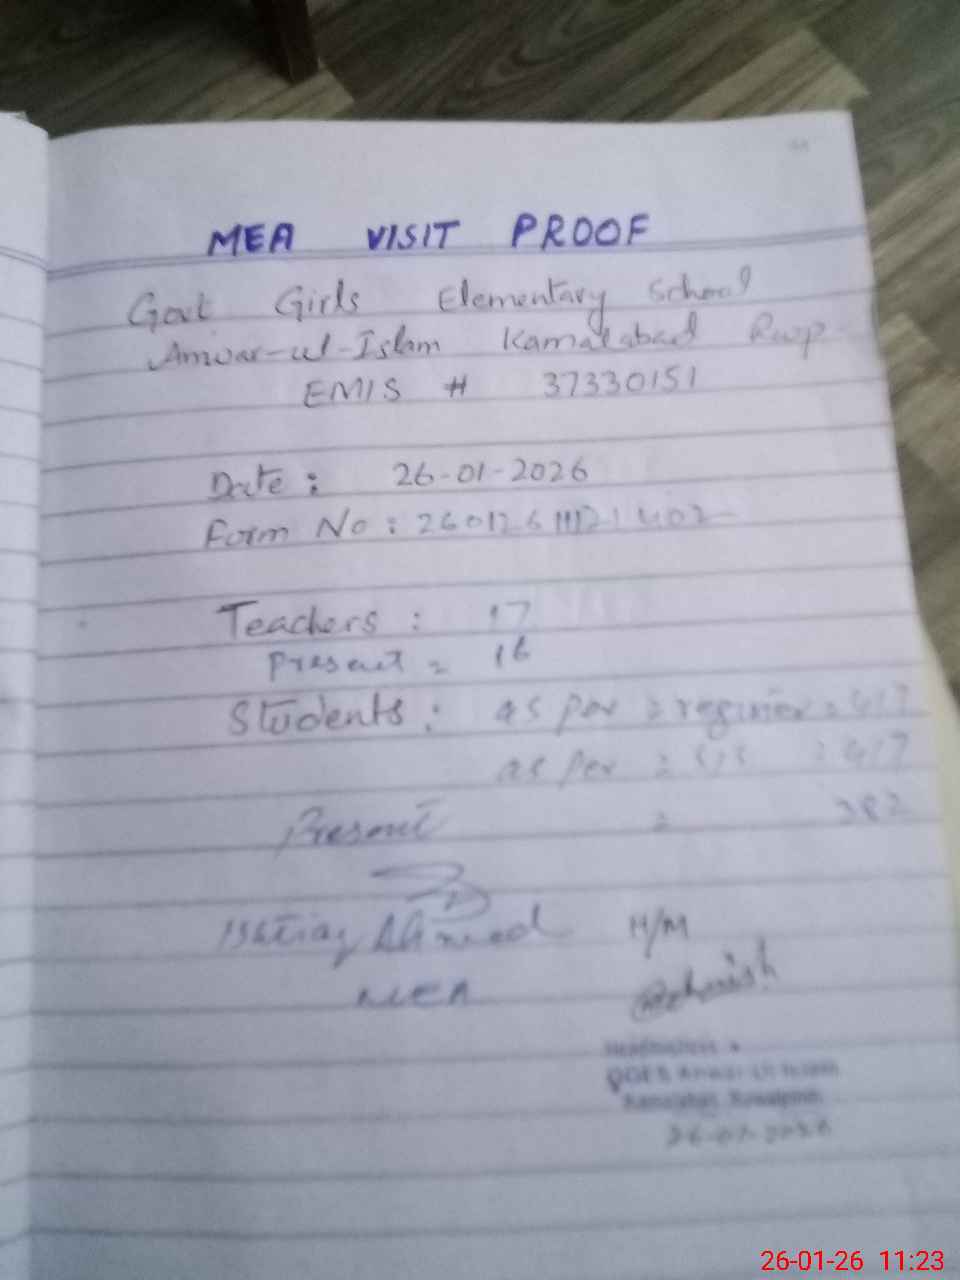 MEA VISIT PROOF
Govt Girls Elementary School
Anwar-ul-Islam Kamalabad Rwp
EMIS # 37330151
Date: 26-01-2026
Form No:
Teachers: 17
Present = 16
Students: as per = register = 417
as per = SIS = 417
Present = 382
Ishtiaq Ahmed
MEA
H/M
Headmistress
GGES Anwar Ul Islam
Kamalabad, Rawalpindi
26-01-2026
26-01-26 11:23